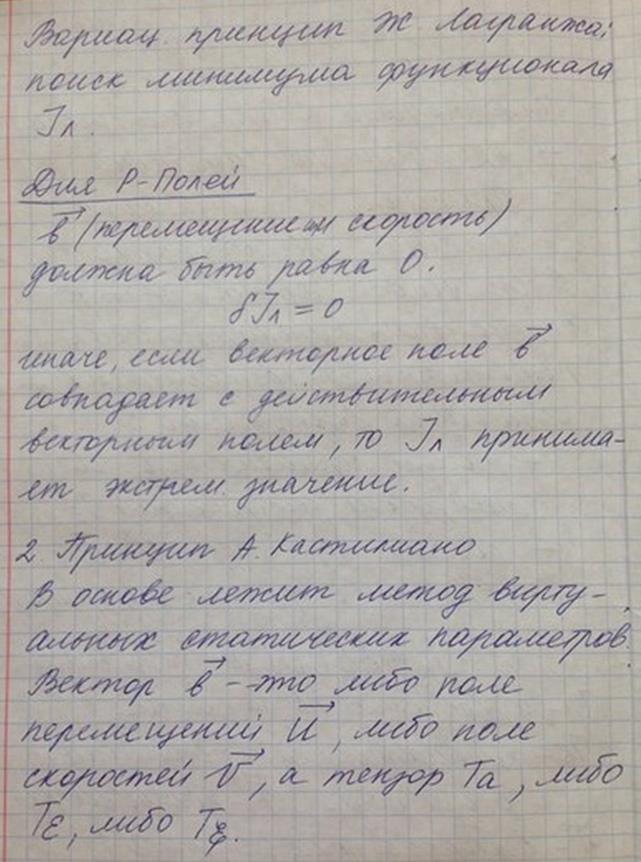 Вариац. принцип Ж. Лагранжа:
поиск минимума функционала
Jл.
Для Р-Полей
в⃗ (перемещение или скорость)
должна быть равна 0.
δJл = 0
иначе, если векторное поле в⃗
совпадает с действительным
векторным полем, то Jл принима-
ет экстрем. значение.
2. Принцип А. Кастилиано
В основе лежит метод вирту-
альных статических параметров.
Вектор в⃗ - это либо поле
перемещений U⃗, либо поле
скоростей V⃗, а тензор Tа, либо
Tε, либо Tξ.